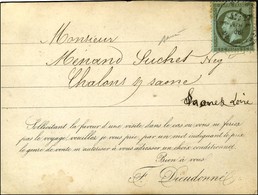 Monsieur
Minand Suchet Neg
Chalons s/ saone
Saone & Loire
Sollicitant la faveur d'une visite dans le cas ou vous ne feriez
pas le voyage, veuillez je vous prie par un mot indiquant le prix
le genre de vente m'autoriser à vous adresser un choix conditionnel.
Bien à vous
F. Dieudonné